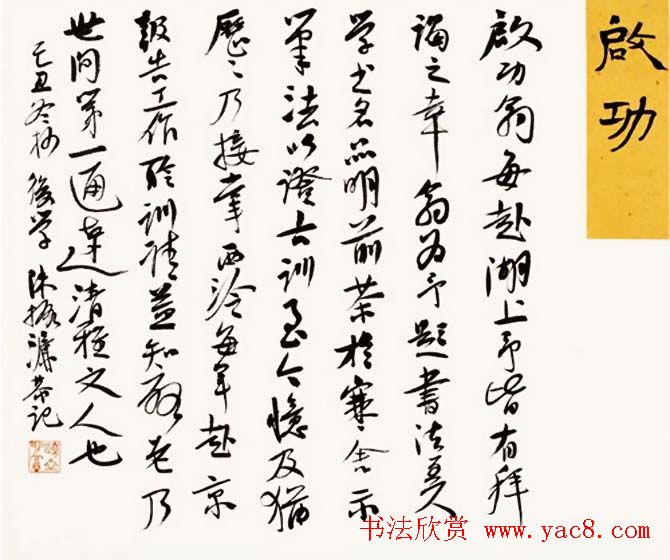 啟功
啟功翁每赴湖上予皆有拜
謁之幸翁为予題書法美
学书名品明前茶於寒〻舍示
筆法以證古训至今憶及猶
歷〻乃接掌西泠每年赴京
報告工作聆训請益知啟老乃
世间第一通達清雅文人也
己丑冬杪後学陈振濂恭记
书法欣赏 www.yac8.com